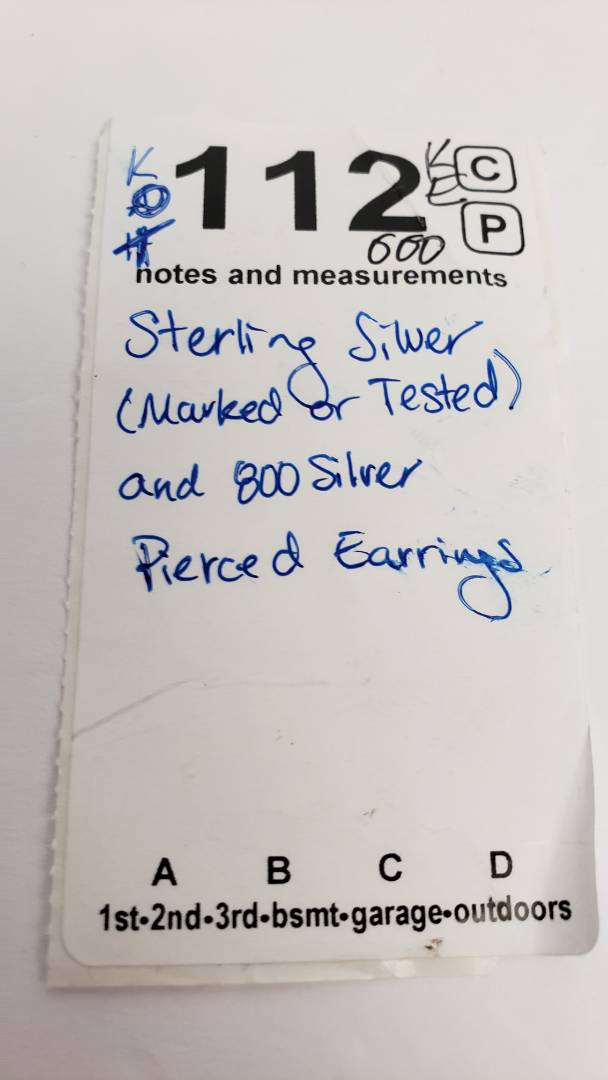 K 112 C
P
notes and measurements
Sterling Silver
(Marked or Tested)
and 800 Silver
Pierced Earrings
A B C D
1st•2nd•3rd•bsmt•garage•outdoors